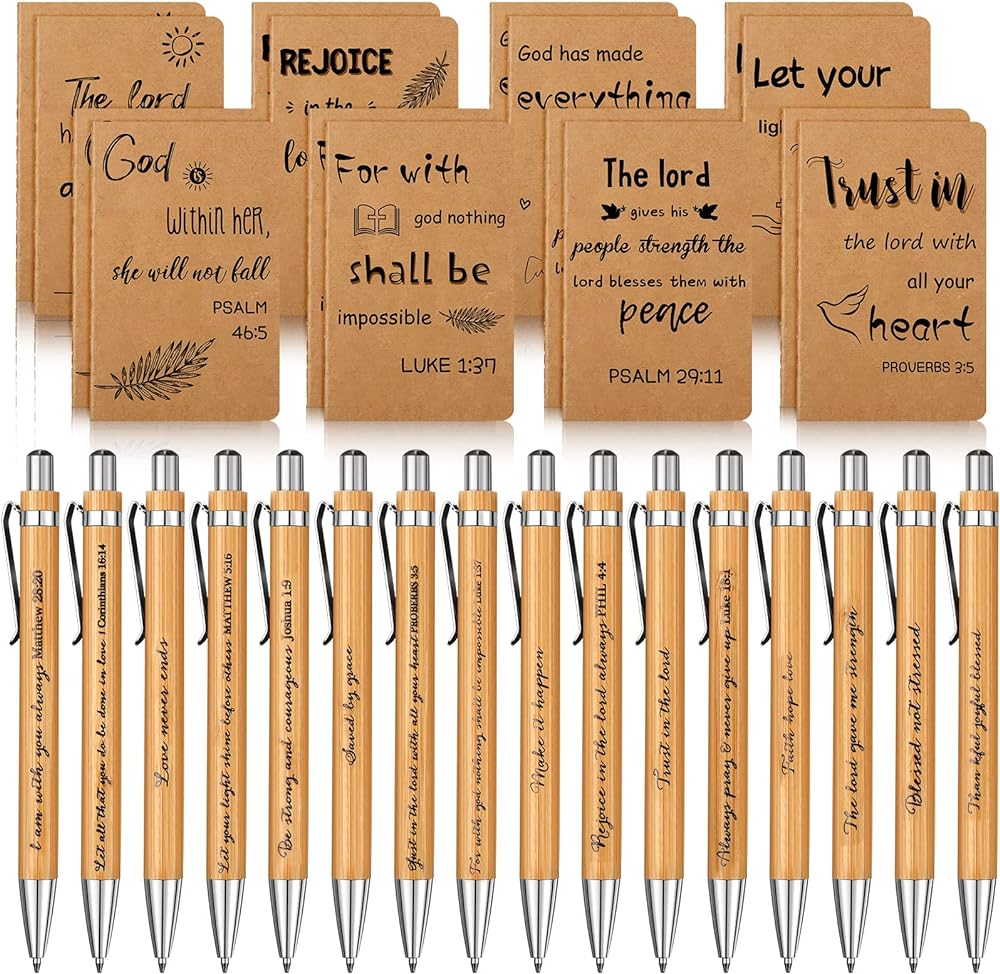 The lord
h
a
REJOICE
in the
lo
God has made
everything
Let your
ligh
God
Within her,
she will not fall
PSALM
46:5
For with
god nothing
shall be
impossible
LUKE 1:37
The lord
gives his
people strength the
lord blesses them with
peace
PSALM 29:11
Trust in
the lord with
all your
heart
PROVERBS 3:5
I am with you always Matthew 28:20
Let all that you do be done in love 1 Corinthians 16:14
Love never ends
Let your light shine before others MATTHEW 5:16
Be strong and courageous Joshua 1:9
Saved by grace
Trust in the lord with all your heart PROBERBS 3:5
For with god nothing shall be impossible Luke 1:37
Make it happen
Rejoice in the lord always PHIL 4:4
Trust in the lord
Always pray & never give up Luke 18:1
Faith hope love
The lord gave me strength
Blessed not stressed
Thankful joyful blessed